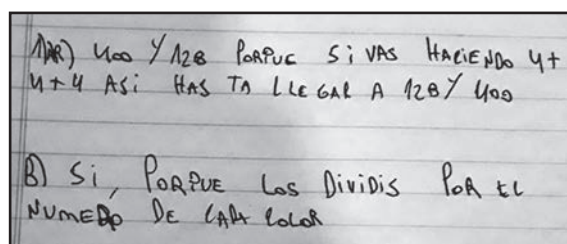 1)A) 400 Y 128 PORPUE Si VAS HACIENDO 4+
4+4 ASi HASTA LLEGAR A 128 Y 400
B) Si, PORPUE LOS DiViDiS POR EL
NUMERO DE CADA COLOR